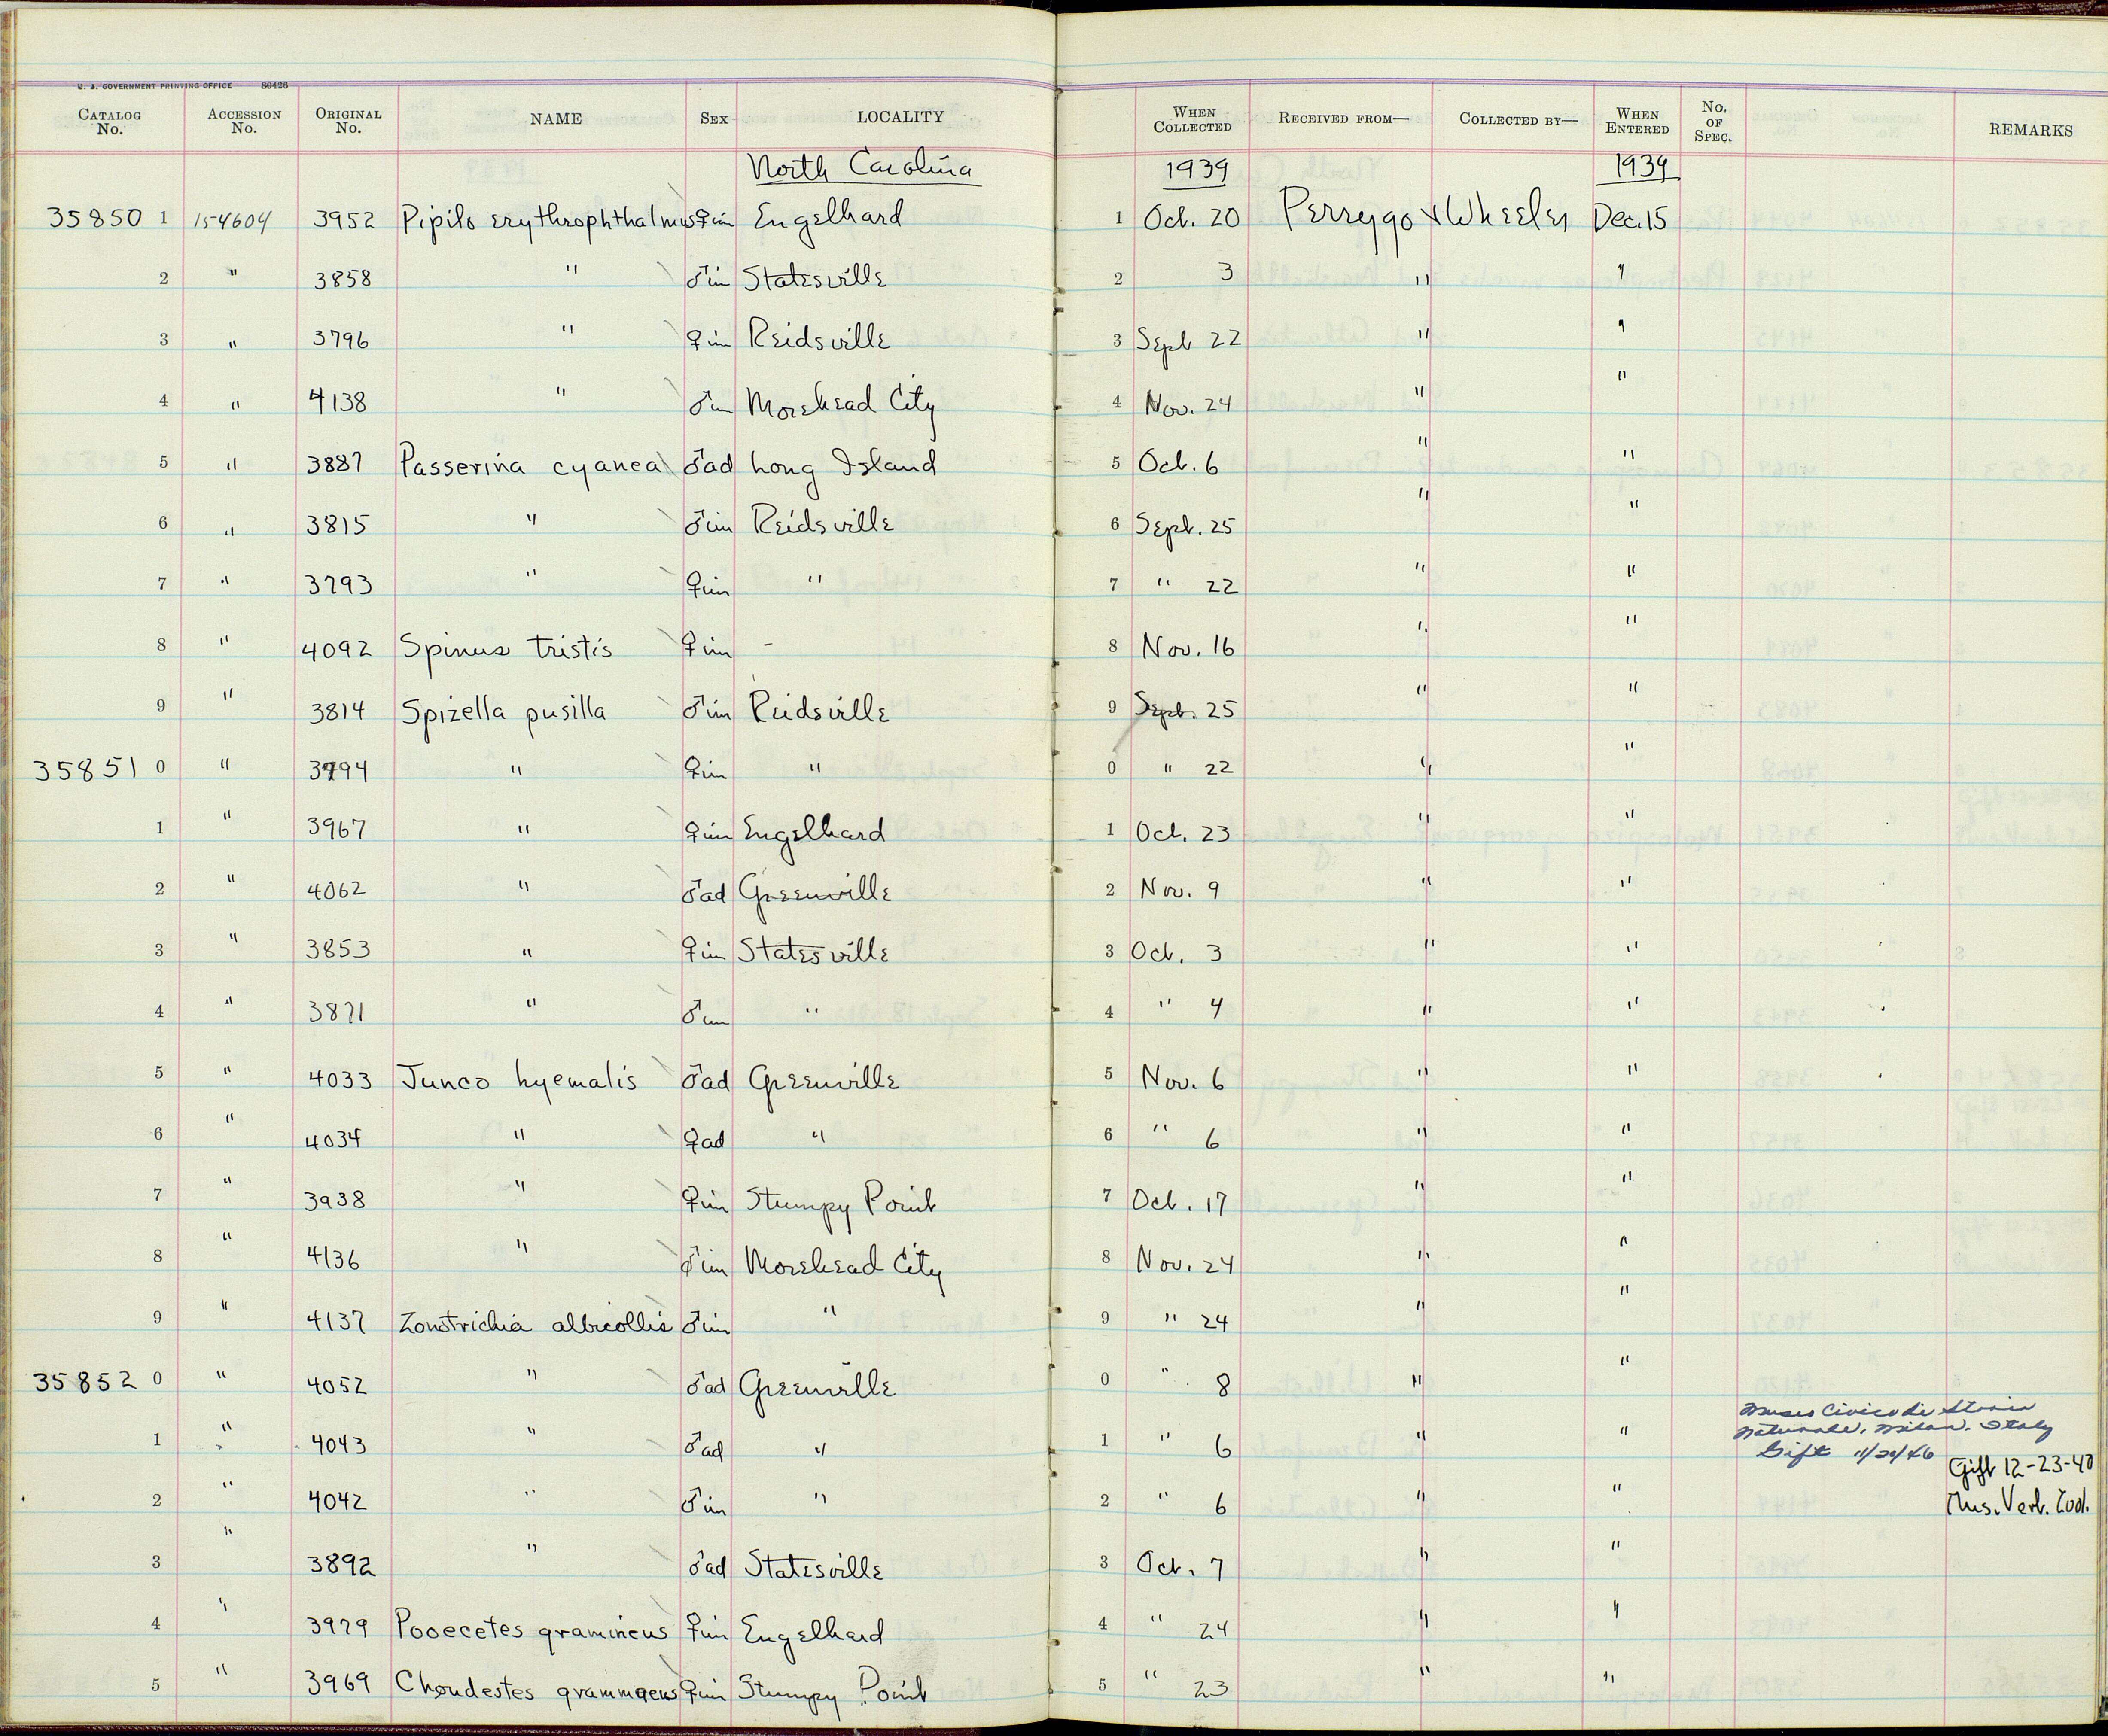 U. S. GOVERNMENT PRINTING OFFICE 80426
CATALOG No. ACCESSION No. ORIGINAL No. NAME SEX LOCALITY WHEN COLLECTED RECEIVED FROM— COLLECTED BY— WHEN ENTERED No. OF SPEC. REMARKS
North Carolina 1939 1939
35850 1 154604 3952 Pipilo erythrophthalmus ♀im Engelhard 1 Oct. 20 Perrygo & Wheeler Dec. 15
2 " 3858 " ♂im Statesville 2 3 " "
3 " 3796 " ♀im Reidsville 3 Sept 22 " "
4 " 4138 " ♂im Morehead City 4 Nov. 24 " "
5 " 3887 Passerina cyanea ♂ad Long Island 5 Oct. 6 " "
6 " 3815 " ♂im Reidsville 6 Sept. 25 " "
7 " 3793 " ♀im " 7 " 22 " "
8 " 4092 Spinus tristis ♀im - 8 Nov. 16 " "
9 " 3814 Spizella pusilla ♂im Reidsville 9 Sept. 25 " "
35851 0 " 3794 " ♀im " 0 " 22 " "
1 " 3967 " ♀im Engelhard 1 Oct. 23 " "
2 " 4062 " ♂ad Greenville 2 Nov. 9 " "
3 " 3853 " ♀im Statesville 3 Oct. 3 " "
4 " 3871 " ♂im " 4 " 4 " "
5 " 4033 Junco hyemalis ♂ad Greenville 5 Nov. 6 " "
6 " 4034 " ♀ad " 6 " 6 " "
7 " 3938 " ♀im Stumpy Point 7 Oct. 17 " "
8 " 4136 " ♂im Morehead City 8 Nov. 24 " "
9 " 4137 Zonotrichia albicollis ♂im " 9 " 24 " "
35852 0 " 4052 " ♂ad Greenville 0 " 8 " "
1 " 4043 " ♂ad " 1 " 6 " " Museo Civico di Storia
Naturale, Milan, Italy
Gift 11/20/46
2 " 4042 " ♂im " 2 " 6 " " Gift 12-23-40
Mus. Vert. Zool.
3 " 3892 " ♂ad Statesville 3 Oct. 7 " "
4 " 3979 Pooecetes gramineus ♀im Engelhard 4 " 24 " "
5 " 3969 Chondestes grammacus ♀im Stumpy Point 5 " 23 " "